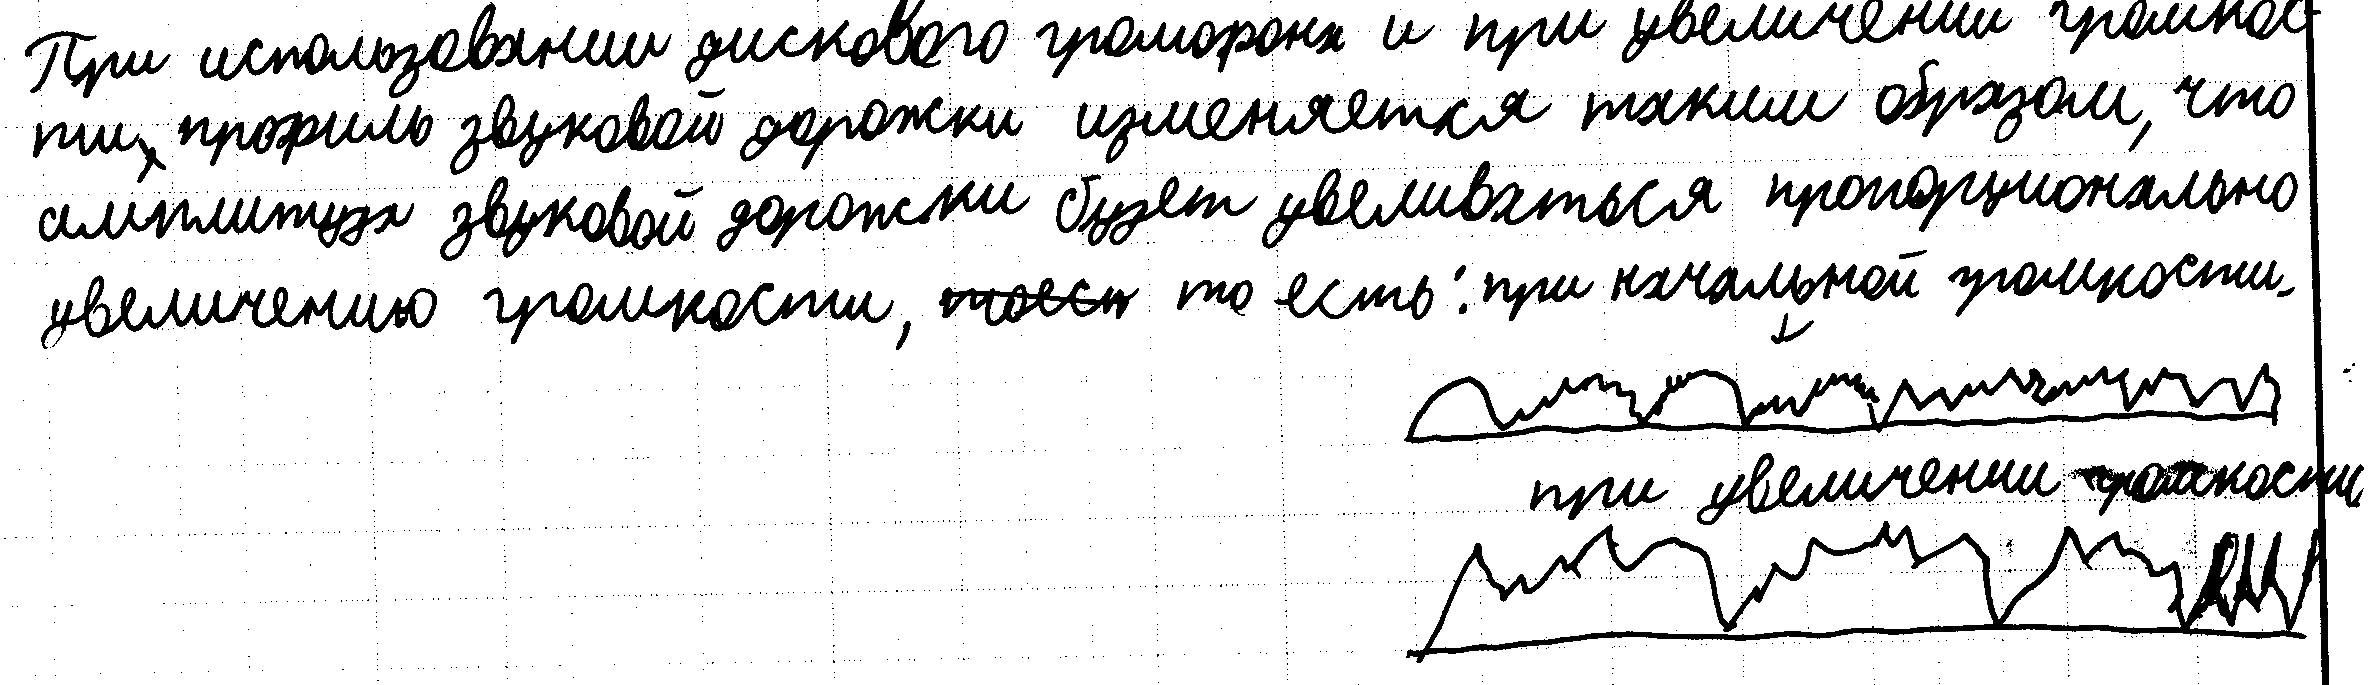 При использовании дискового громофона и при увеличении громкос
ти, профиль звуковой дорожки изменяется таким образом, что
амплитуда звуковой дорожки будет увеливаться пропорционально
увеличению громкости, то есть: при начальной громкости.
при увеличении громкости